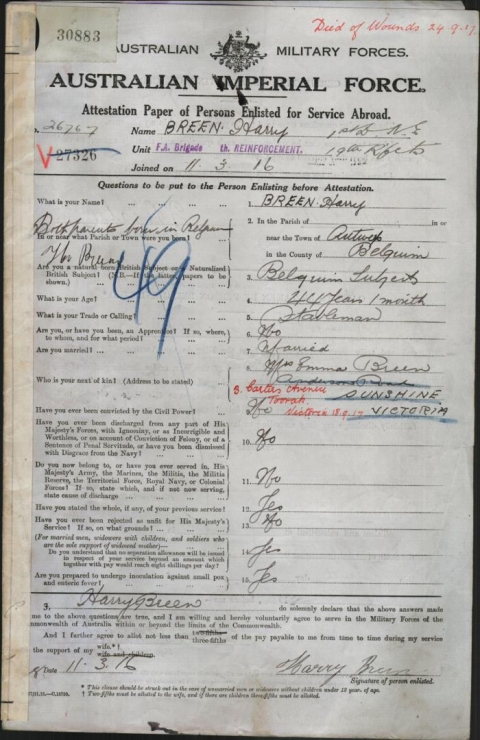 Died of Wounds 24.9.17
30883
AUSTRALIAN MILITARY FORCES.
AUSTRALIAN IMPERIAL FORCE.
Attestation Paper of Persons Enlisted for Service Abroad.
No. 26767 Name BREEN Harry
V 27326 Unit F.A. Brigade th. REINFORCEMENT. 19th Rfcts
Joined on 11. 3. 16
Questions to be put to the Person Enlisting before Attestation.
What is your Name? ... ... 1. BREEN Harry
Both parents born in Belgium
2. In the Parish of in or
In or near what Parish or Town were you born? near the Town of Antwerp
in the County of Belgium
49
Are you a natural born British Subject or a Naturalised British Subject? (N.B.—If the latter, papers to be shown.) 3. Belgium Subject
What is your Age? 4. 44 Years 1 month
What is your Trade or Calling? 5. Stableman
Are you, or have you been, an Apprentice? If so, where, to whom, and for what period? 6. No
Are you married? 7. Married
8. Mrs Emma Breen
Who is your next of kin? (Address to be stated)
Anderson Road
SUNSHINE
VICTORIA
3. Carters Avenue
Toorak
Victoria 18.9.17
Have you ever been convicted by the Civil Power? 9. No
Have you ever been discharged from any part of His Majesty's Forces, with Ignominy, or as Incorrigible and Worthless, or on account of Conviction of Felony, or of a Sentence of Penal Servitude, or have you been dismissed with Disgrace from the Navy? 10. No
Do you now belong to, or have you ever served in, His Majesty's Army, the Marines, the Militia, the Militia Reserve, the Territorial Force, Royal Navy, or Colonial Forces? If so, state which, and if not now serving, state cause of discharge 11. No
Have you stated the whole, if any, of your previous service? 12. Yes
Have you ever been rejected as unfit for His Majesty's Service? If so, on what grounds? 13. No
(For married men, widowers with children, and soldiers who are the sole support of widowed mother)—
Do you understand that no separation allowance will be issued in respect of your service beyond an amount which together with pay would reach eight shillings per day? 14. Yes
Are you prepared to undergo inoculation against small pox and enteric fever? 15. Yes
3. Harry Breen do solemnly declare that the above answers made
me to the above questions are true, and I am willing and hereby voluntarily agree to serve in the Military Forces of the
Commonwealth of Australia within or beyond the limits of the Commonwealth.
And I further agree to allot not less than two-fifths three-fifths of the pay payable to me from time to time during my service
the support of my wife.*†
wife and children.
Date 11. 3. 16
Harry Breen
Signature of person enlisted.
* This clause should be struck out in the case of unmarried men or widowers without children under 18 year of age.
† Two-fifths must be allotted to the wife, and if there are children three-fifths must be allotted.